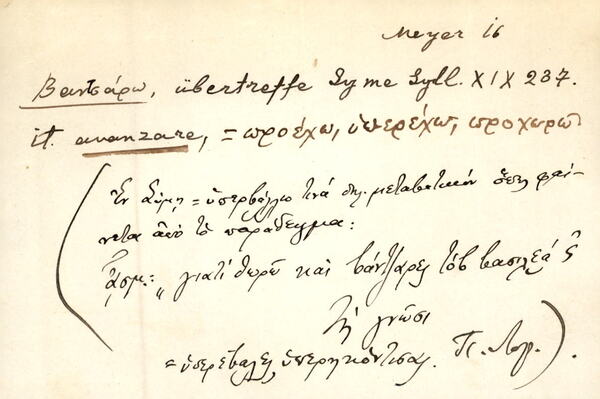 Meyer 16
Βαντσάρω, übertreffe Syme Syll. XIX 237.
it. avanzare, = προέχω, ὑπερέχω, προχωρῶ
(Ἐν Σύμῃ = ὑπερβάλλω τινά δηλ. μεταβατικόν ὅπως φαί-
νεται ἀπό τὸ παράδειγμα:
ᾆσμ.: „γιατί θωρῶ καὶ βάντζαρες τὸβ βασιλεά 'ς
τὴ γνῶσι
= ὑπερέβαλες, ὑπερηκόντισας. Πς. Λογ.).